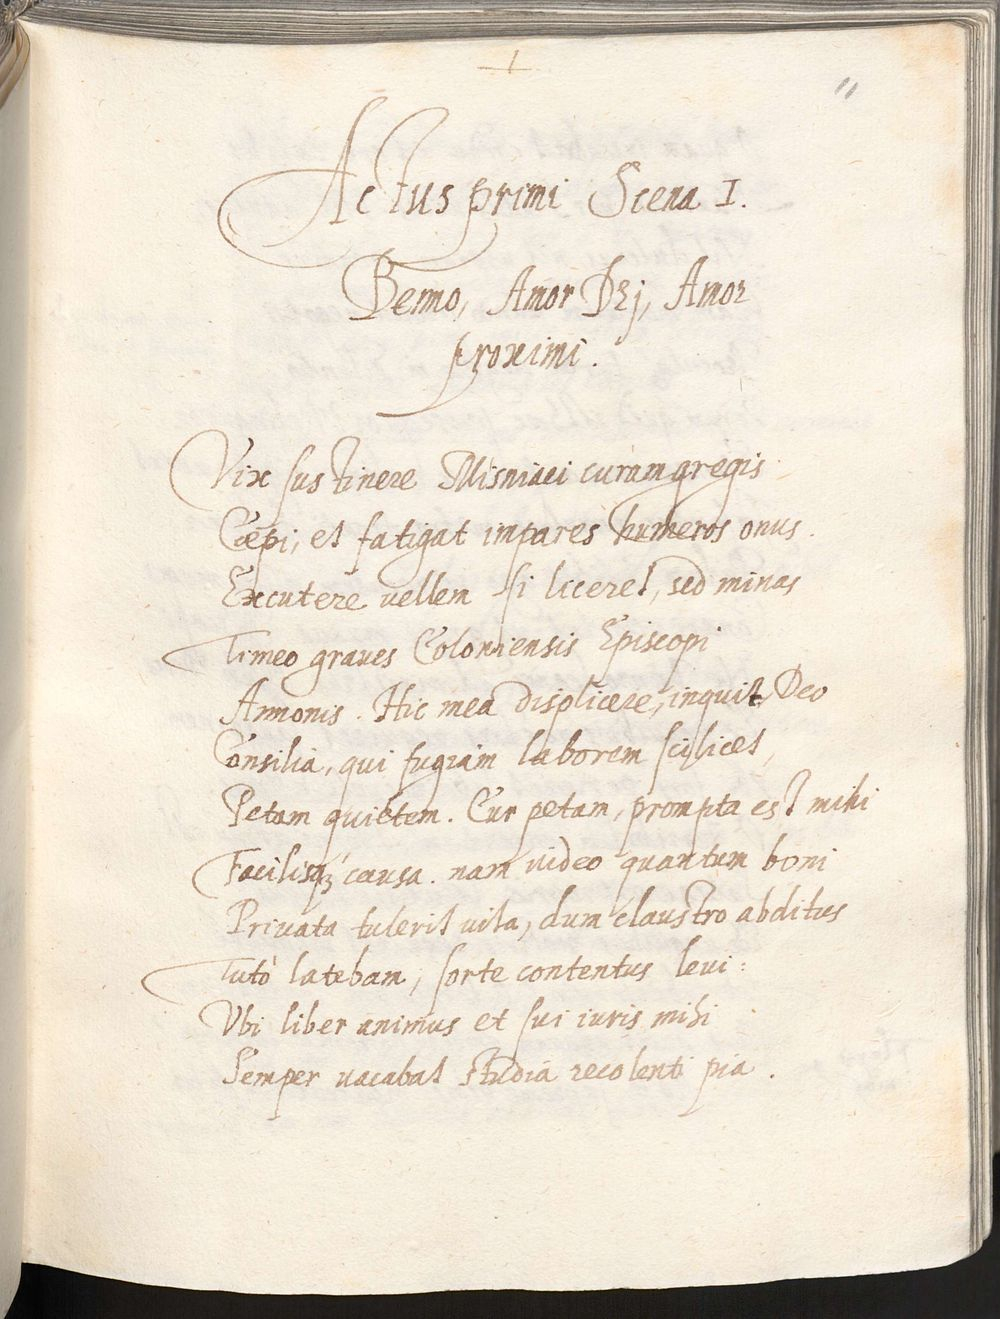 11
Actus primi Scena I.
Benno, Amor Dej, Amor
proximi.
Vix sustinere Misniaei curam gregis
Cœpi, et fatigat impares humeros onus.
Excutere vellem si liceret, sed minas
Timeo graues Coloniensis Episcopi
Annonis. Hic mea displicere, inquit, Deo
Consilia, qui fugiam laborem scilicet,
Petam quiétem. Cur petam, prompta est mihi
Facilisq; causa. nam video quantum boni
Priuata tulerit uita, dum claustro abditus
Tutò latebam, sorte contentus leui:
Vbi liber animus et sui iuris mihi
Semper uacabat studia recolenti pia.